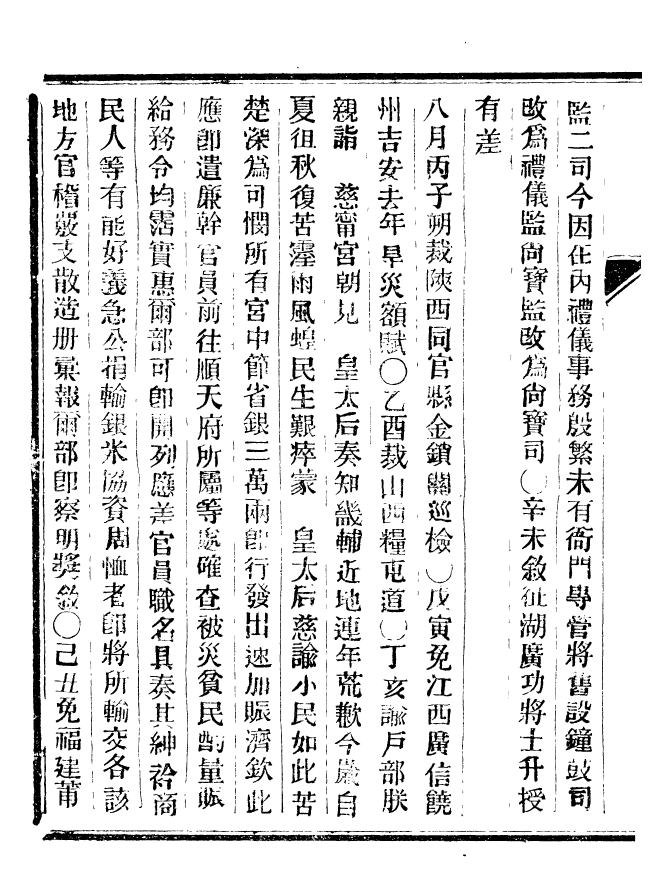 監二司今因在內禮儀事務殷繁未有衙門專管將舊設鐘鼓司
改爲禮儀監尙寶監改爲尙寶司〇辛未敘征湖廣功將士升授
有差
八月丙子朔裁陝西同官縣金鎖關巡檢〇戊寅免江西廣信饒
州吉安去年旱災額賦〇乙酉裁山西糧屯道〇丁亥諭戶部朕
親詣　慈甯宮朝見　皇太后奏知畿輔近地連年荒歉今歲自
夏徂秋復苦霪雨風蝗民生艱瘁蒙　皇太后慈諭小民如此苦
楚深爲可憫所有宮中節省銀三萬兩卽行發出速加賑濟欽此
應卽遣廉幹官員前往順天府所屬等處確查被災貧民酌量賑
給務令均霑實惠爾部可卽開列應差官員職名具奏其紳衿商
民人等有能好義急公捐輸銀米協資周恤者卽將所輸交各該
地方官稽嚴支散造册彙報爾部卽察明獎敘〇己丑免福建莆